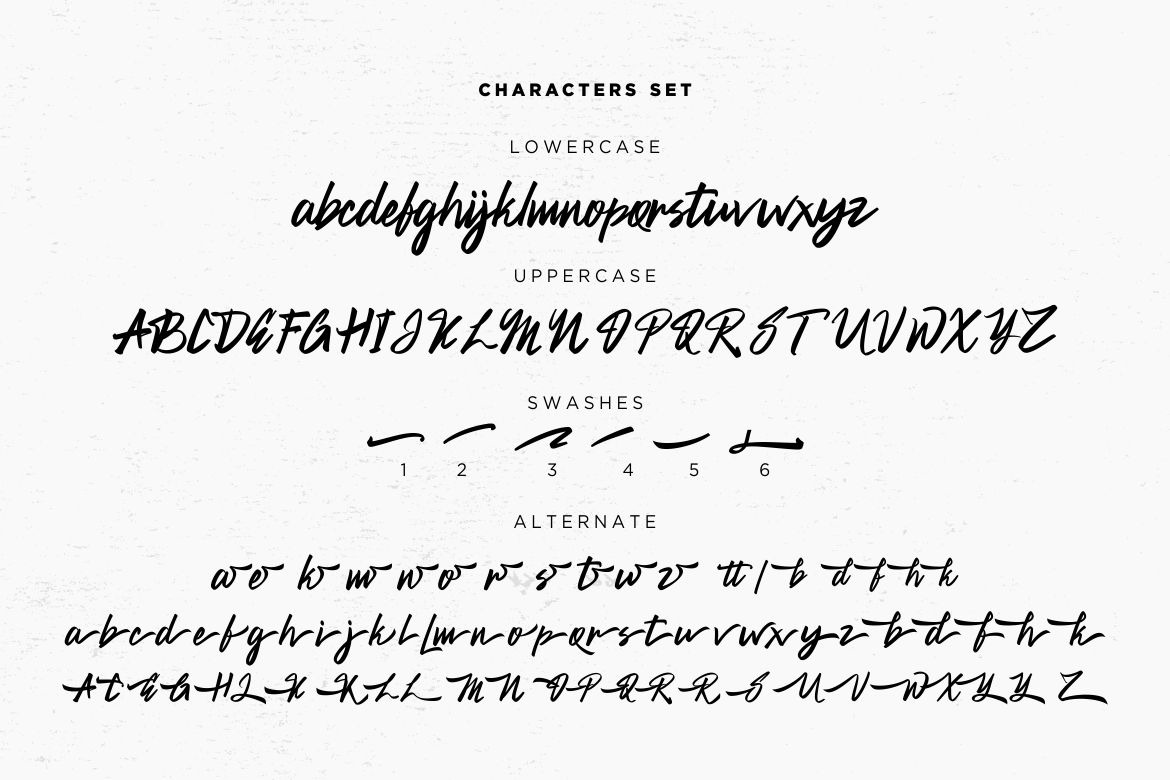 CHARACTERS SET
LOWERCASE
abcdefghijklmnopqrstuvwxyz
UPPERCASE
ABCDEFGHIJKLMNOPQRSTUVWXYZ
SWASHES
1 2 3 4 5 6
ALTERNATE
a e k m n o r s t w z tt / b d f h k
a b c d e f g h i j k l l m n o p q r s t u v w x y z b d f h k
A C E G H J K K L L M N O P Q R R S U V W X Y Y Z